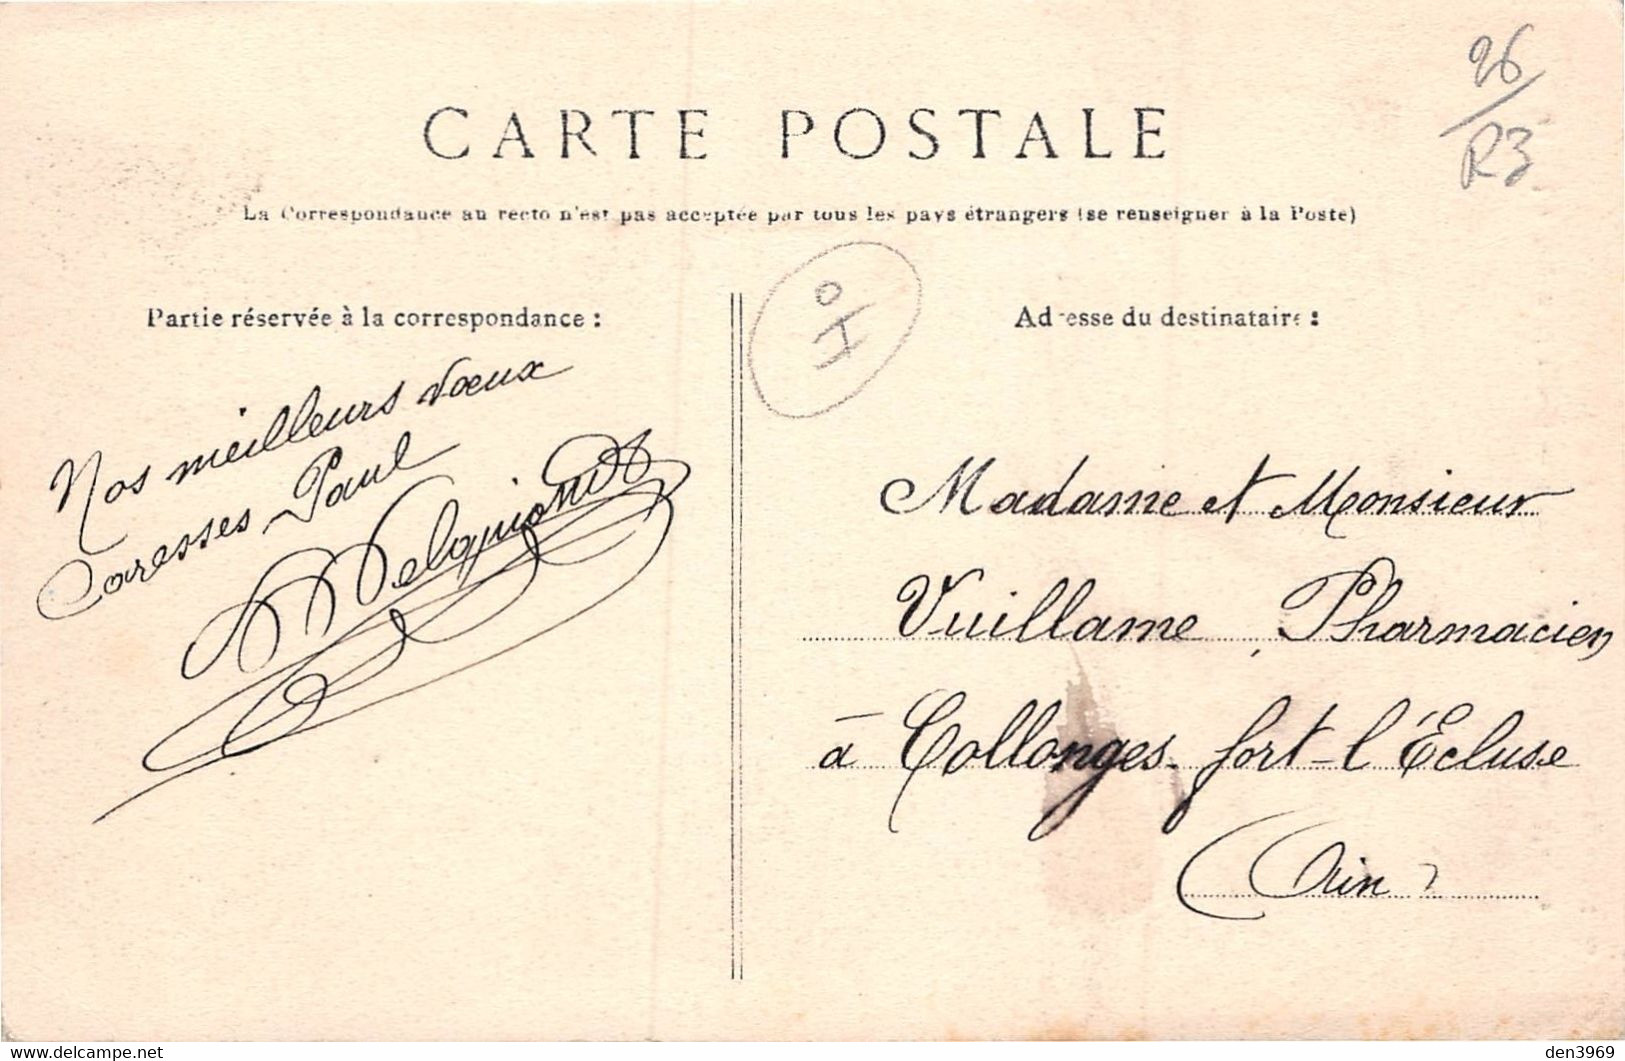 96
R3
CARTE POSTALE
La Correspondance au recto n'est pas acceptée par tous les pays étrangers (se renseigner à la Poste)
Partie réservée à la correspondance :
Nos meilleurs vœux
Caresses Paul
Adresse du destinataire :
Madame et Monsieur
Vuillame, Pharmacien
à Collonges-fort-l'Écluse
(Ain)
den3969